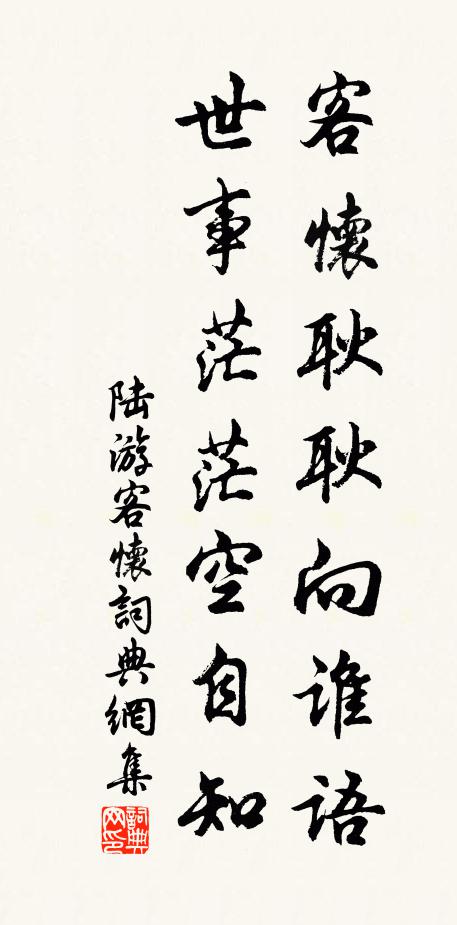 客懷耿耿向誰語
世事茫茫空自知
陸游客懷詞典網集
詞典
网印